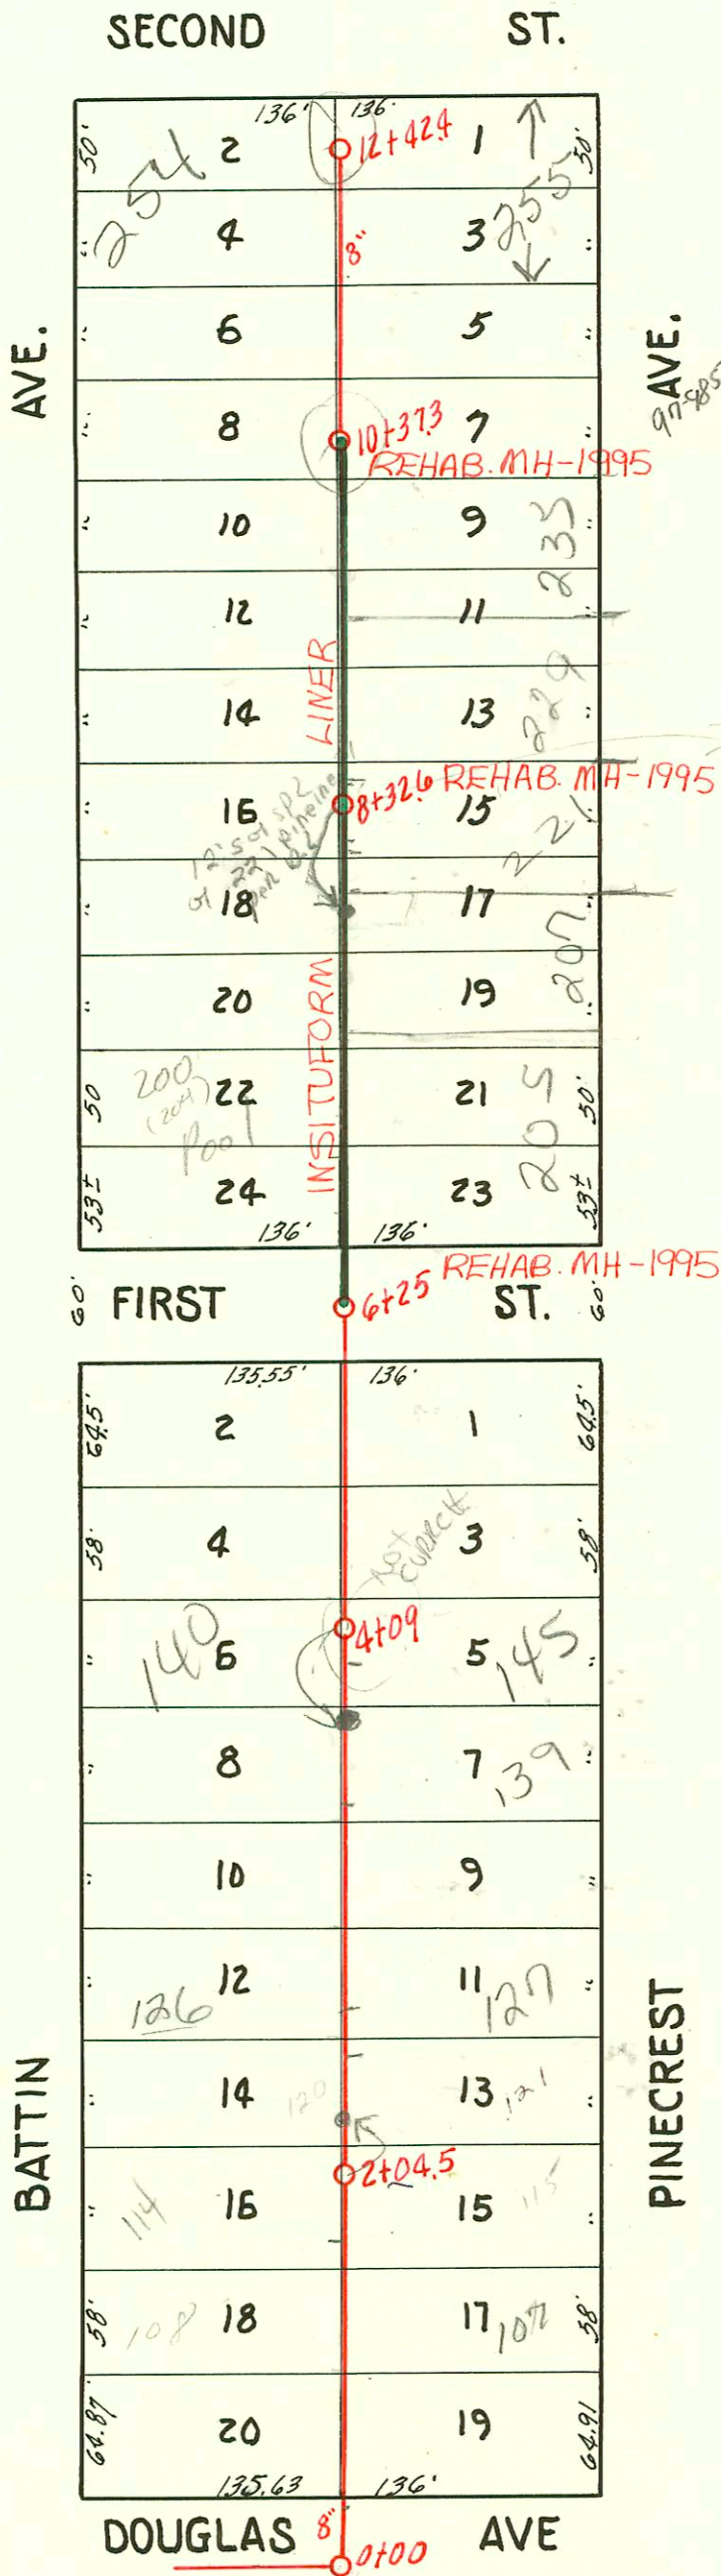 SECOND ST.
136' 136'
50' 2 12+42.4 1 50'
254 255
" 4 8" 3 "
" 6 5 "
AVE. AVE.
97-985
" 8 10+37.3 7
REHAB. MH-1995
" 10 9 " 235
" 12 11 "
LINER
" 14 13 " 229
" 16 8+32.6 REHAB. MH-1995 15
221
" 18 17 "
207
" 20 19 "
INSITUFORM
200
(204)
Pool
50 22 21 50'
205
53± 24 23 53±
136' 136'
REHAB. MH-1995
60' FIRST 6+25 ST. 60'
135.55' 136'
64.5' 2 1 64.5'
58' 4 3 58'
NOT
CORRECT
4+09
140 " 6 5 145 "
" 8 7 139 "
" 10 9 "
" 12 11 127 "
126
BATTIN PINECREST
" 14 120 13 121 "
2+04.5
114 " 16 15 115 "
58' 108 18 17 107 58'
64.87' 20 19 64.91
135.63 136'
DOUGLAS 8" AVE
0+00